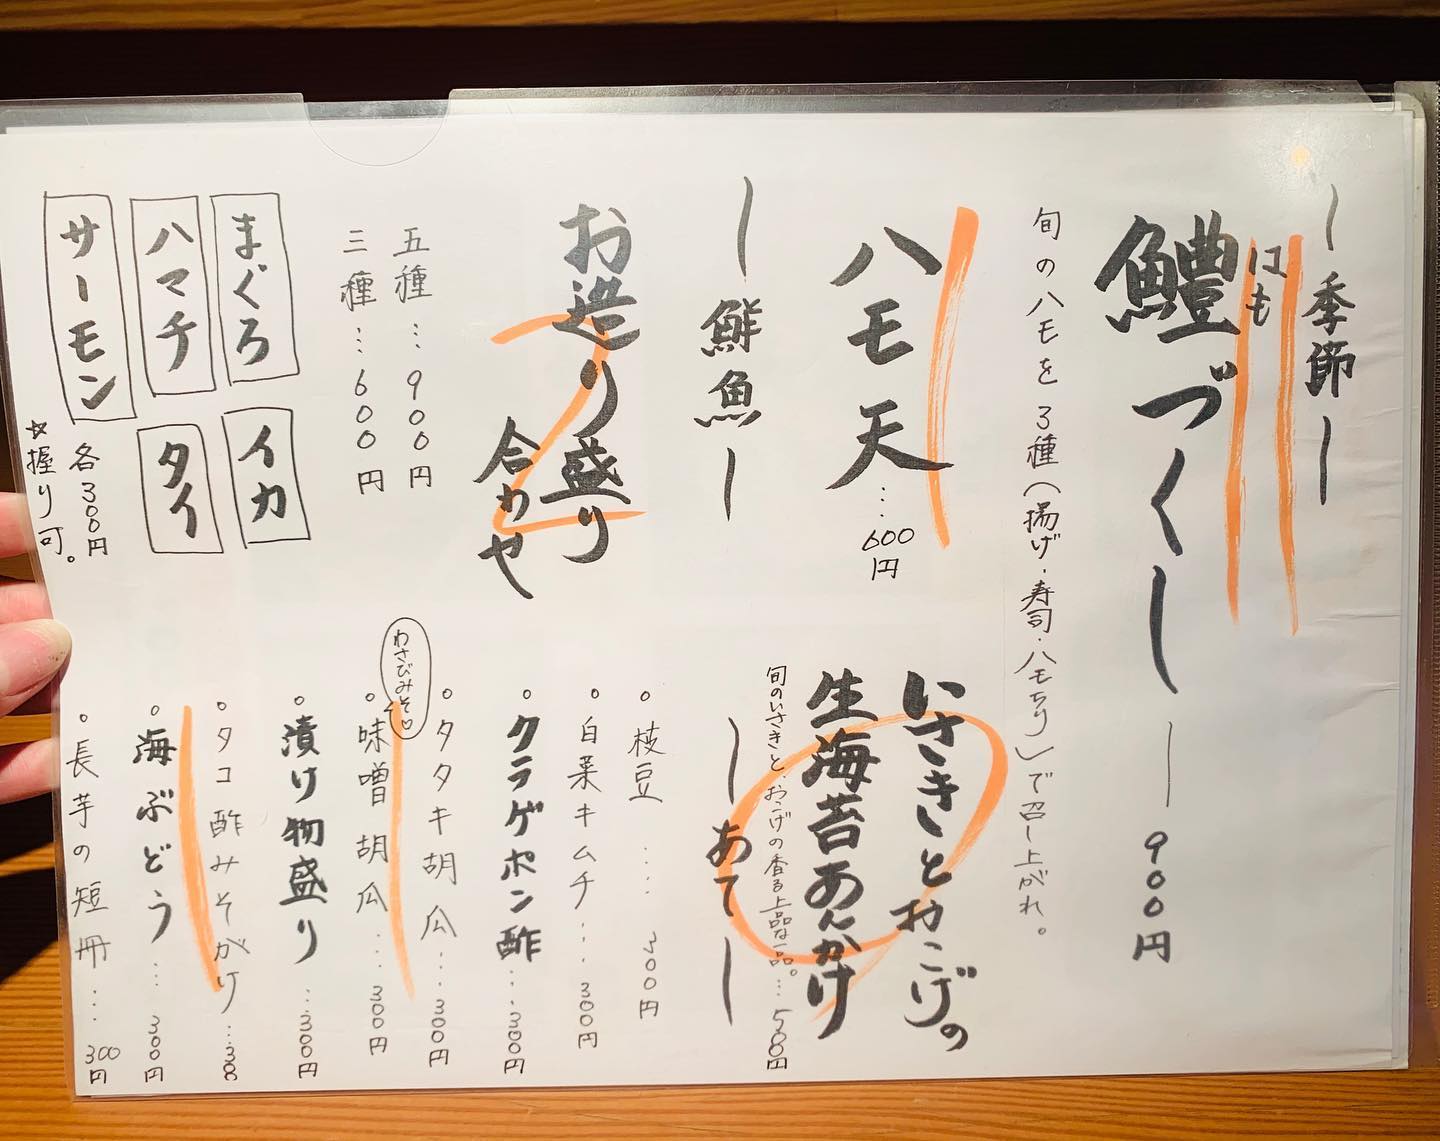 〜季節〜
はも
鱧づくし 〜 900円
旬のハモを3種(揚げ・寿司・ハモちり)で召し上がれ。
ハモ天…600円
いさきとおこげの
生海苔あんかけ
旬のいさきと、おこげの香る上品な一品。…500円
〜鮮魚〜
お造り盛り
合わせ
五種…900円
三種…600円
まぐろ
イカ
ハマチ
タイ
サーモン
各300円
☆握り可。
〜あて〜
。枝豆……300円
。白菜キムチ…300円
。クラゲポン酢…300円
。タタキ胡瓜…300円
わさびみそ♡
。味噌胡瓜…300円
。漬け物盛り…300円
。タコ酢みそがけ…300
。海ぶどう…300円
。長芋の短冊…300円